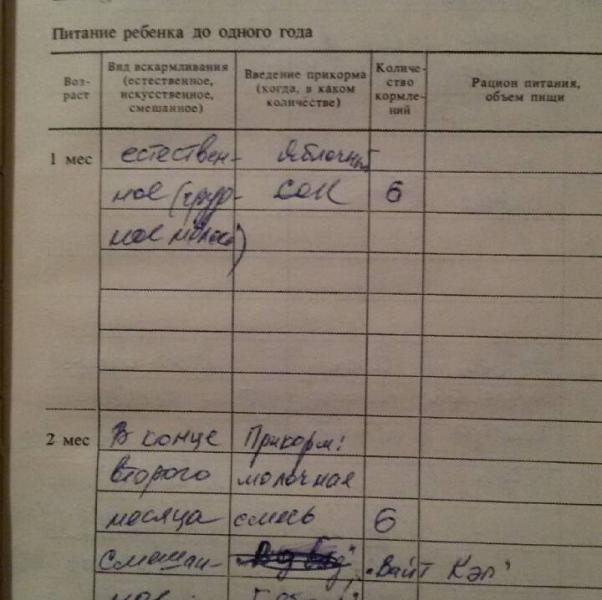 Питание ребенка до одного года
Воз-
раст
Вид вскармливания
(естественное,
искусственное,
смешанное)
Введение прикорма
(когда, в каком
количестве)
Количе-
ство
кормле-
ний
Рацион питания,
объем пищи
1 мес
естествен- Яблочный
ное (груд- сок 6
ное молоко)
2 мес
В конце Прикорм:
второго молочная
месяца смесь 6
смешан- „Вайт Кэл"
ное